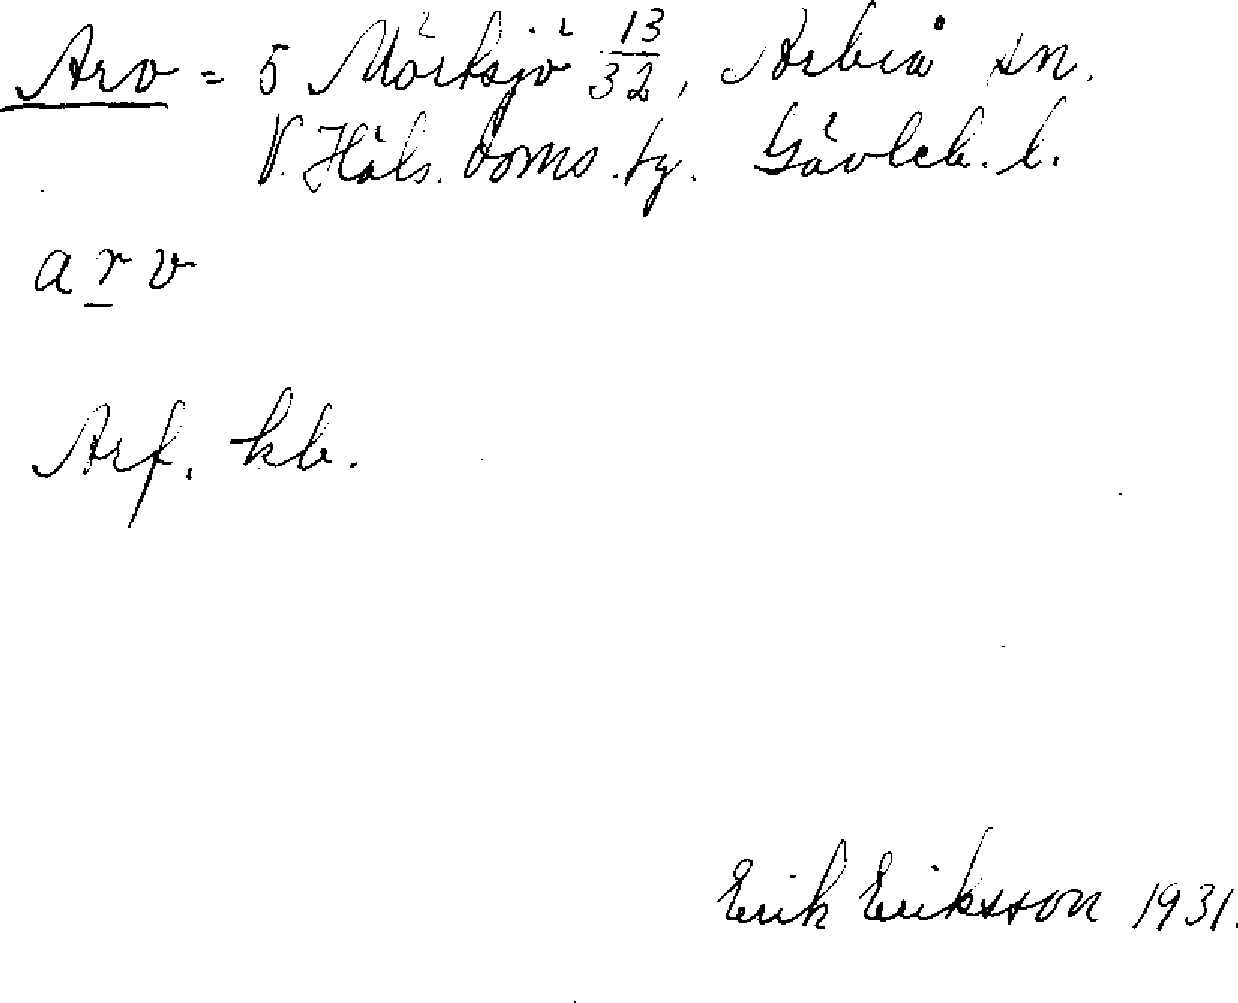 Arv = 5 Mörtsjö 13/32, Arbrå sn.
V. Häls. doms. ty. Gävleb. l.
arv
Arf. kb.
Erik Eriksson 1931.